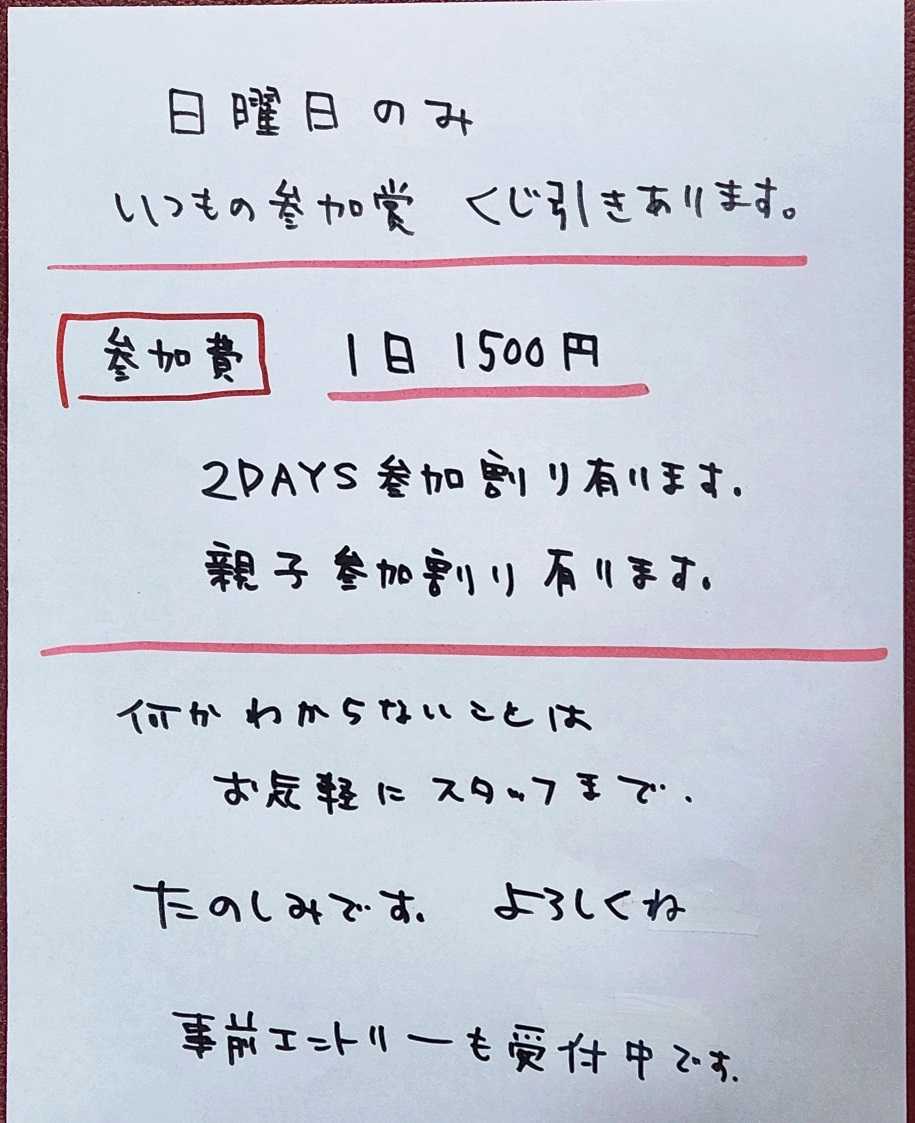 日曜日のみ
いつもの参加賞 くじ引きあります。
参加費 1日 1500円
2DAYS参加割り有ります.
親子参加割り有ります.
何かわからないことは
お気軽にスタッフまで.
たのしみです. よろしくね
事前エントリーも受付中です.